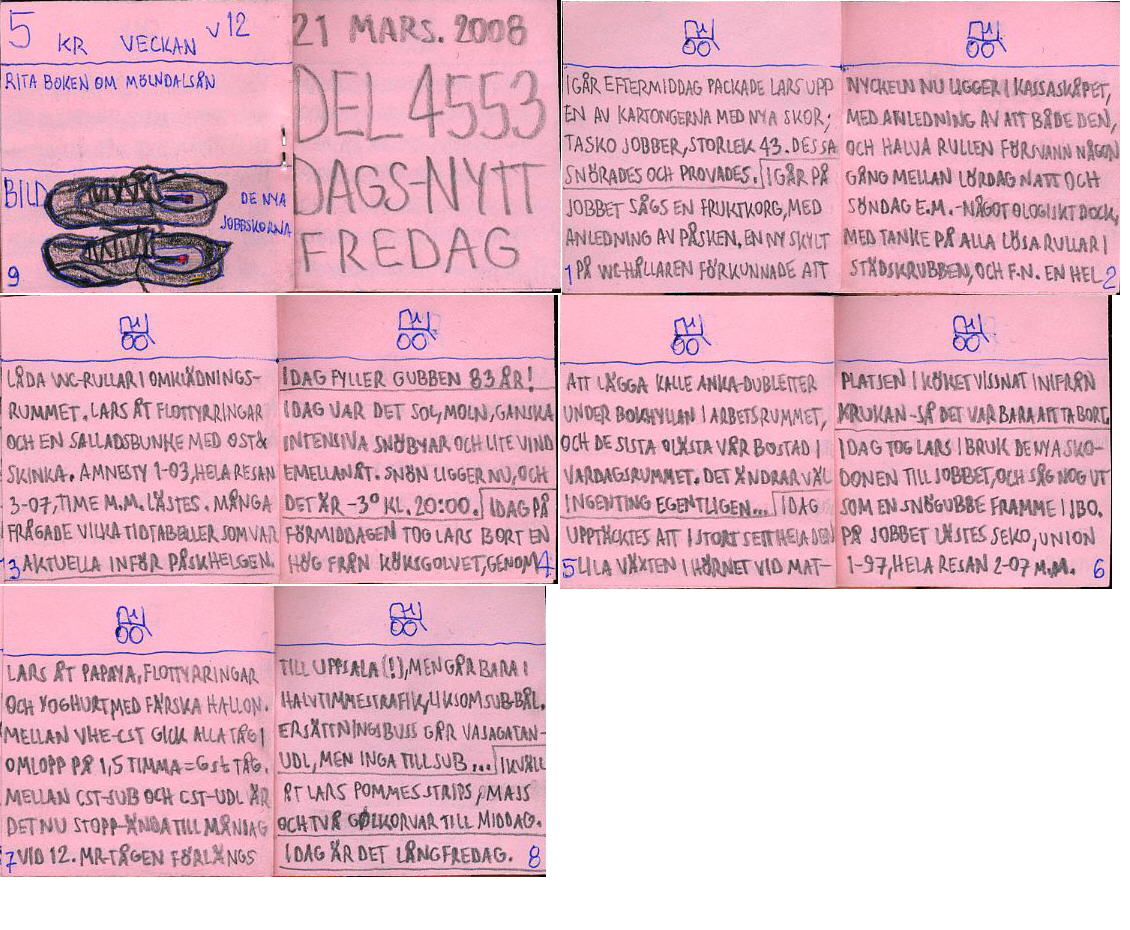 5 KR VECKAN V12
RITA BOKEN OM MÖLNDALSÅN
BILD
DE NYA
JOBBSKORNA
9
21 MARS. 2008
DEL 4553
DAGS-NYTT
FREDAG
IGÅR EFTERMIDDAG PACKADE LARS UPP
EN AV KARTONGERNA MED NYA SKOR;
TASKO JOBBER, STORLEK 43. DESSA
SNÖRADES OCH PROVADES. IGÅR PÅ
JOBBET SÅGS EN FRUKTKORG, MED
ANLEDNING AV PÅSKEN, EN NY SKYLT
1 PÅ WC-HÅLLAREN FÖRKUNNADE ATT
NYCKELN NU LIGGER I KASSASKÅPET,
MED ANLEDNING AV ATT BÅDE DEN,
OCH HALVA RULLEN FÖRSVANN NÅGON
GÅNG MELLAN LÖRDAG NATT OCH
SÖNDAG E.M. -NÅGOT OLOGISKT DOCK,
MED TANKE PÅ ALLA LÖSA RULLAR I
STÄDSKRUBBEN, OCH F.N. EN HEL 2
LÅDA WC-RULLAR I OMKLÄDNINGS-
RUMMET. LARS ÅT FLOTTYRRINGAR
OCH EN SALLADSBUNKE MED OST &
SKINKA. AMNESTY 1-03, HELA RESAN
3-07, TIME M.M. LÄSTES. MÅNGA
FRÅGADE VILKA TIDTABELLER SOM VAR
3 AKTUELLA INFÖR PÅSKHELGEN.
IDAG FYLLER GUBBEN 83 ÅR!
IDAG VAR DET SOL, MOLN, GANSKA
INTENSIVA SNÖBYAR OCH LITE VIND
EMELLANÅT. SNÖN LIGGER NU, OCH
DET ÄR -3° KL. 20:00. IDAG PÅ
FÖRMIDDAGEN TOG LARS BORT EN
HÖG FRÅN KÖKSGOLVET, GENOM 4
ATT LÄGGA KALLE ANKA-DUBLETTER
UNDER BOKHYLLAN I ARBETSRUMMET,
OCH DE SISTA OLÄSTA VÅR BOSTAD I
VARDAGSRUMMET. DET ÄNDRAR VÄL
INGENTING EGENTLIGEN... IDAG
UPPTÄCKTES ATT I STORT SETT HELA DEN
5 LILA VÄXTEN I HÖRNET VID MAT-
PLATSEN I KÖKET VISSNAT INIFRÅN
KRUKAN -SÅ DET VAR BARA ATT TA BORT.
IDAG TOG LARS I BRUK DE NYA SKO-
DONEN TILL JOBBET, OCH SÅG NOG UT
SOM EN SNÖGUBBE FRAMME I JBO.
PÅ JOBBET LÄSTES SEKO, UNION
1-97, HELA RESAN 2-07 M.M. 6
LARS ÅT PAPAYA, FLOTTYRRINGAR
OCH YOGHURT MED FÄRSKA HALLON.
MELLAN VHE-CST GICK ALLA TÅG I
OMLOPP PÅ 1,5 TIMMA = 6 ST TÅG.
MELLAN CST-SUB OCH CST-UDL ÄR
DET NU STOPP-ÄNDA TILL MÅNDAG
7 VID 12. MR-TÅGEN FÖRLÄNGS
TILL UPPSALA (!), MEN GÅR BARA I
HALVTIMMESTRAFIK, LIKSOM SUB-BÅL.
ERSÄTTNINGSBUSS GÅR VASAGATAN-
UDL, MEN INGA TILL SUB... IKVÄLL
ÅT LARS POMMES STRIPS, MAJS
OCH TVÅ GOLKORVAR TILL MIDDAG.
IDAG ÄR DET LÅNGFREDAG. 8